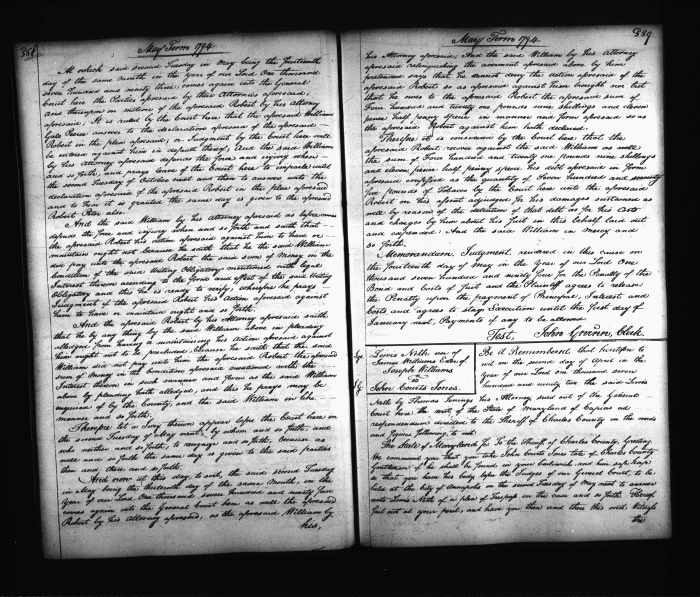 358
May Term 1794.
At which said second Tuesday in May being the fourteenth
day of the same month in the Year of our Lord One thousand
seven hundred and ninety three; comes again into the General
Court here the Parties aforesaid by their Attornies aforesaid;
And thereupon on motion of the aforesaid Robert by his Attorney
aforesaid, It is ruled by the Court here that the aforesaid William
answer to the declaration aforesaid of the aforesaid
Robert in the plea aforesaid, or Judgment by the Court here will
be entered against him in default thereof; And the said William
by his Attorney aforesaid defends the force and injury when
and so forth, and prays leave of the Court here to imparle until
the second Tuesday of October next and then to answer unto the
declaration aforesaid of the aforesaid Robert in the plea aforesaid
and to him it is granted the same day is given to the aforesaid
Robert also.
And the said William by his Attorney aforesaid as before comes
defends the force and injury when and so forth and saith that
the aforesaid Robert his action aforesaid against him to have or
maintain ought not because he saith that he the said William
did pay unto the aforesaid Robert the said sum of Money in the
Condition of the said Writing Obligatory mentioned with legal
Interest thereon according to the form and effect of the said Writing
Obligatory and this he is ready to verify; wherefore he prays
Judgment if the aforesaid Robert his action aforesaid against
him to have or maintain ought and so forth.
And the aforesaid Robert by his Attorney aforesaid saith,
that he by any thing by the said William above in pleading
alledged, from having or maintaining his action aforesaid against
him ought not to be precluded, Because he saith that the said
William did not pay unto him the aforesaid Robert the aforesaid
sum of Money in the Condition aforesaid mentioned with the
Interest thereon in such manner and form as the said William
above by pleading hath alledged, and this he prays may be
enquired of by the County, and the said William in like
manner and so forth.
Therefore let a Jury thereon appear before the Court here on
the second Tuesday of May next, by whom and so forth, and
who neither and so forth, to recognize and so forth, because as
well and so forth the same day is given to the said parties
then and there and so forth.
And now at this day, to wit, the said second Tuesday
in May being the thirteenth day of the same Month, in the
Year of our Lord One thousand seven hundred and ninety four
comes again into the General Court here as well the aforesaid
Robert by his Attorney aforesaid, as the aforesaid William by
his,
359
May Term 1794.
his Attorney aforesaid; And the said William by his Attorney
aforesaid relinquishing the averment aforesaid above by him
pretended says that he cannot deny the action aforesaid of the
aforesaid Robert so as aforesaid against him brought nor but
that he owes to the aforesaid Robert the aforesaid sum of
Four hundred and twenty one pounds nine shillings and eleven
pence half penny specie in manner and form aforesaid so as
the aforesaid Robert against him hath declared.
Therefore it is considered by the Court here, that the
aforesaid Robert recover against the said William as well
the sum of Four hundred and twenty one pounds nine shillings
and eleven pence half penny specie his debt aforesaid in form
aforesaid confessed as the quantity of Seven hundred and seventy
five pounds of Tobacco by the Court here unto the aforesaid
Robert on his assent adjudged for his damages sustained as
well by reason of the detention of that debt as for his Costs
and charges by him about his suit in this behalf laid out
and expended; And the said William in mercy and
so forth.
Memorandum. Judgment, rendered in this cause on
the fourteenth day of May in the Year of our Lord One
thousand seven hundred and ninety four for the Penalty of the
Bond and Costs of suit and the Plaintiff agrees to release
the Penalty upon the payment of Principal, Interest and
Costs and agrees to stay Execution until the first day of
January next, Payments if any to be allowed
Test, John Gwinn, Clk.
Lewis Neth
James Williams Exor of
Joseph Williams
vs
John Courts Jones.
Be it Remembered that heretofore to
wit on the second day of April in the
year of our Lord One thousand seven
hundred and ninety two the said Lewis
Neth by Thomas Jenings his Attorney sued out of the General
Court here the writ of the State of Maryland of Capias ad
respondendum directed to the Sheriff of Charles County in the words
and figures following, to wit.
The State of Maryland to the Sheriff of Charles County, Greeting.
We command you that you take John Courts Jones late of Charles County
Gentleman if he shall be found in your bailiwick, and him safe keep
so that you have his body before the Judges of our General Court, to be
held at the City of Annapolis on the second Tuesday of May next to answer
unto Lewis Neth of a plea of Trespass on the case and so forth. Hereof
fail not at your peril, and have you then and there this writ, Witness
the